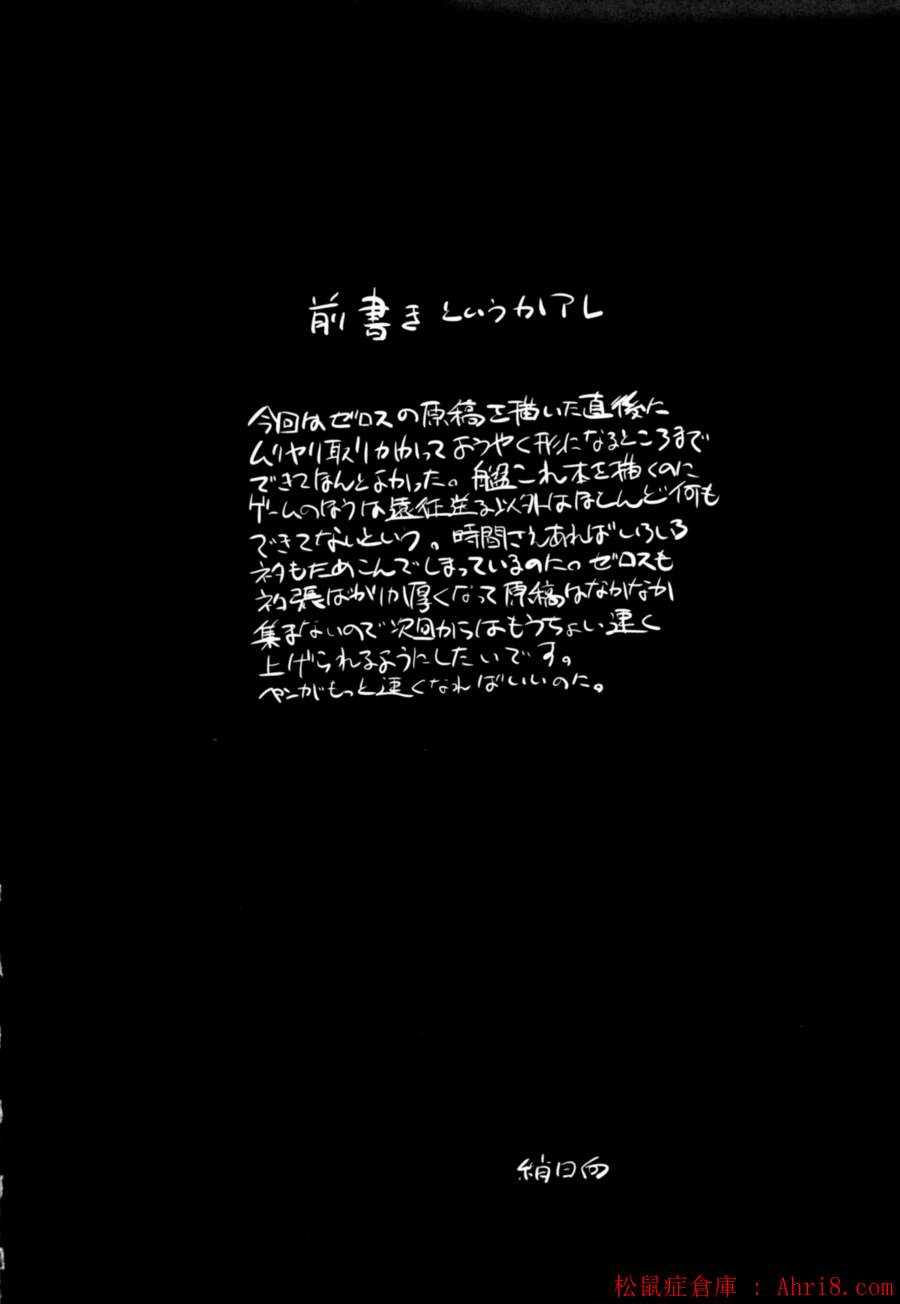 前書きというかアレ
今回はゼロスの原稿を描いた直後に
ムリヤリ取りかかってようやく形になるところまで
できてほんとよかった。艦これ本を描くのに
ゲームのほうは遠征送る以外はほとんど何も
できてないという。時間さえあればいろいろ
ネタもためこんでしまっているのに。ゼロスも
ネタ帳ばかり厚くなって原稿はなかなか
集まないので次回からはもうちょい速く
上げられるようにしたいです。
ペンがもっと速くなればいいのに。
絹日向
松鼠症倉庫 : Ahri8.com